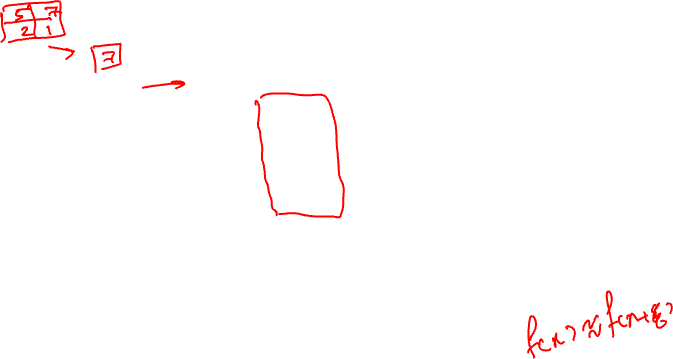 5 7
2 1
7
f(x) ≈ f(x+ε)